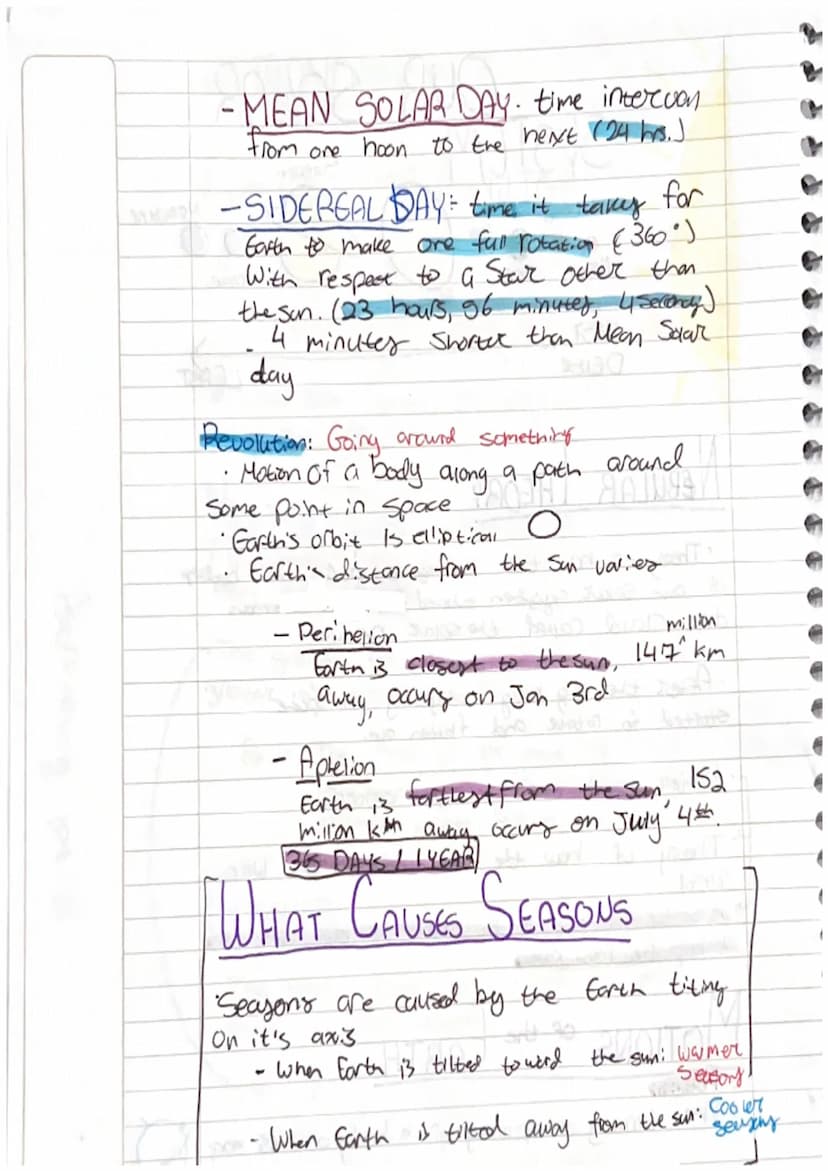 - MEAN SOLAR DAY. time interval
from one noon to the next (24 hrs.)
- SIDEREAL DAY: time it takes for
Earth to make one full rotation (360°)
with respect to a star other than
the sun. (23 hours, 56 minutes, 4 seconds)
- 4 minutes shorter than Mean Solar
day
Revolution: Going around something
· Motion of a body along a path around
some point in space
· Earth's orbit is elliptical
· Earth's distance from the sun varies
- Perihelion
Earth is closest to the sun, 147 million km
away, occurs on Jan 3rd
- Aphelion
Earth is farthest from the sun, 152
million km away, occurs on July 4th.
365 DAYS / 1 YEAR
WHAT CAUSES SEASONS
· Seasons are caused by the Earth tilting
on it's axis
- when Earth is tilted toward the sun: warmer
seasons
- When Earth is tilted away from the sun: Cooler
seasons